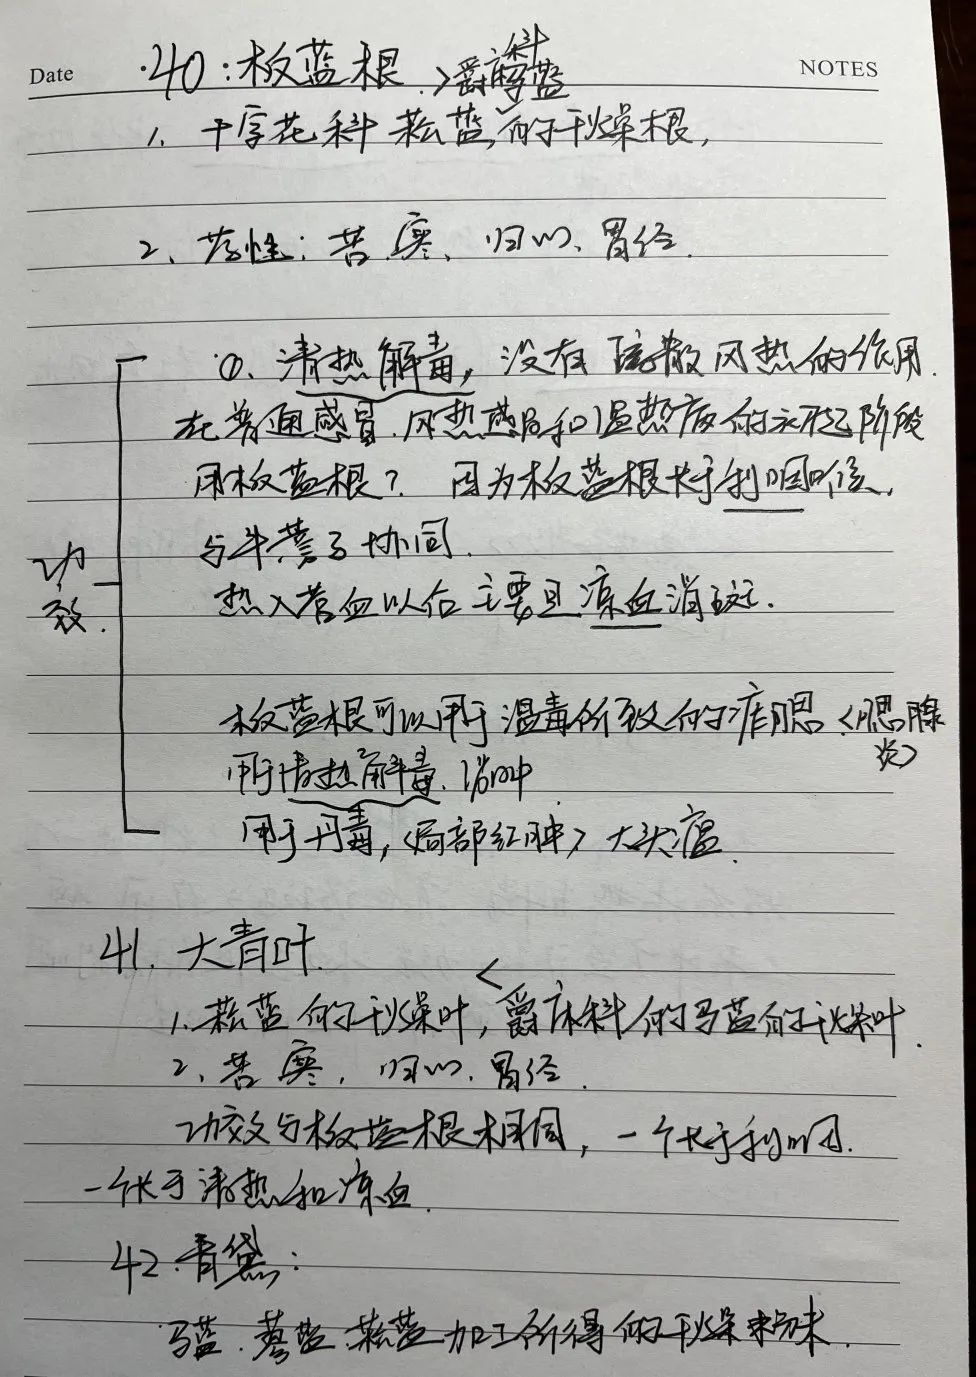 Date
NOTES
·40:板蓝根.
>爵床科
马蓝
1、十字花科菘蓝,的干燥根,
2、药性:苦.寒、归心、胃经.
①、清热解毒,没有疏散风热的作用.
在普通感冒.风热感冒和温热病的初起阶段
用板蓝根?因为板蓝根长于利咽喉,
与牛蒡子协同.
热入营血以后主要且凉血消斑.
功效.
板蓝根可以用于温毒所致的痄腮<腮腺
炎>
用于清热解毒.消肿
用于丹毒,<局部红肿>大头瘟.
41、大青叶.
1、菘蓝的干燥叶,爵床科的马蓝的干燥叶.
2、苦寒.归心.胃经.
功效与板蓝根相同,一个长于利咽.
一个长于清热和凉血.
42.青黛:
马蓝.蓼蓝.菘蓝加工所得的干燥粉末.